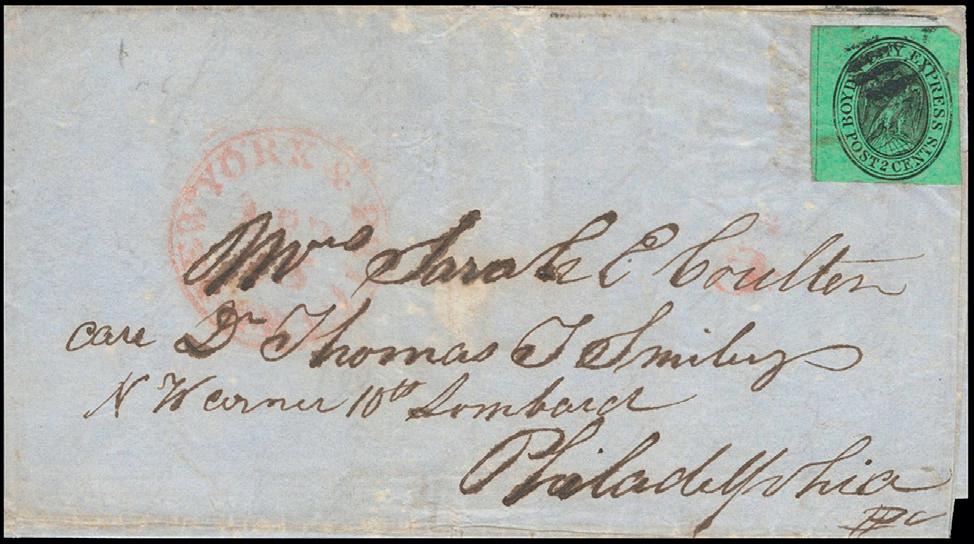 BOYD'S CITY EXPRESS
POST 2 CENTS
YORK &
Mrs Sarah E Coulter
care Dr Thomas T Smiley
N W corner 10th Lombard
Philadelphia